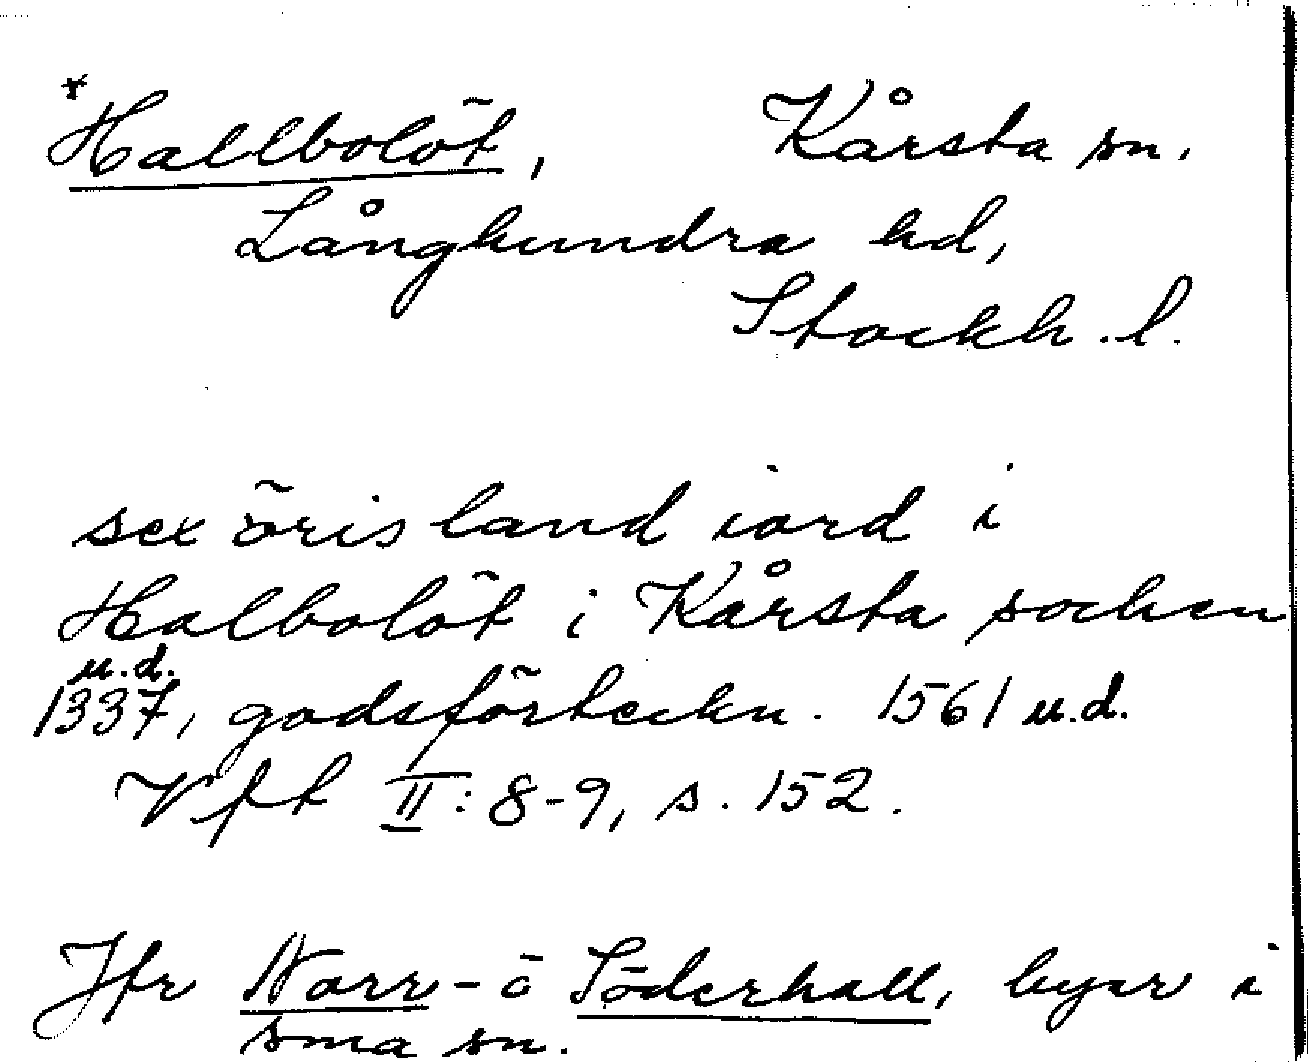 *Hallbolöt, Kårsta sn.
Långhundra hd,
Stockh. l.
sex örisland iord i
Halbolöt i Kårsta sochen
u.d.
1337, godsförteckn. 1561 u.d.
Vft II: 8-9, s. 152.
Jfr Norr- o Söderhall, byar i
sma sn.